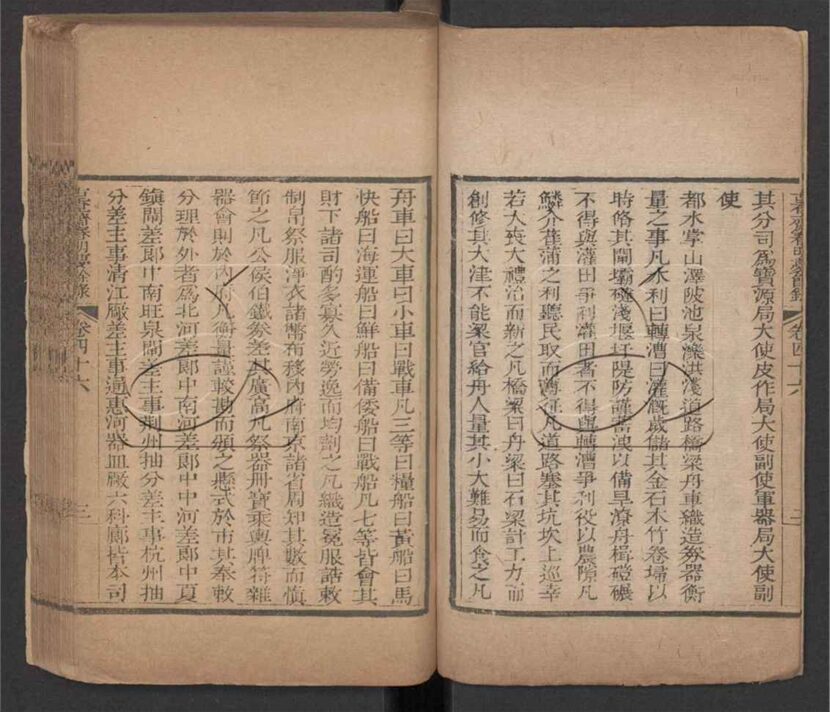 其分司爲寶源局大使皮作局大使副使軍器局大使副
使
都水掌山澤陂池泉濼洪淺道路橋梁舟車織造劵器衡
量之事凡水利曰轉漕曰灌漑歲儲其金石木竹卷埽以
時脩其閘壩礮淺堰圩隄防謹蓄洩以備旱潦舟楫磑碾
不得與灌田爭利灌田者不得與轉漕爭利役以農隙凡
鱗介萑蒲之利聽民取而薄征凡道路塞其坑坎上巡幸
若大喪大禮治而新之凡橋梁曰舟梁曰石梁計工力而
創修其大津不能梁官給舟人量其小大難易而食之凡
舟車曰大車曰小車曰戰車凡三等曰糧船曰黃船曰馬
快船曰海運船曰鮮船曰備倭船曰戰船凡七等皆會其
財下諸司酌多寡久近勞逸而均劑之凡織造冕服誥敕
制帛祭服淨衣諸幣布移內府南京諸省周知其數而慎
節之凡公侯伯鐵劵差其廣高凡祭器冊寶乘輿牌符雜
器會則於內府凡衡量謹較勘而頒之懸式於市其奉敕
分理於外者爲北河差郞中南河差郞中中河差郞中夏
鎮閘差郞中南旺泉閘差主事荆州抽分差主事杭州抽
分差主事清江廠差主事通惠河器皿廠六科廊皆本司
卷四十六
三